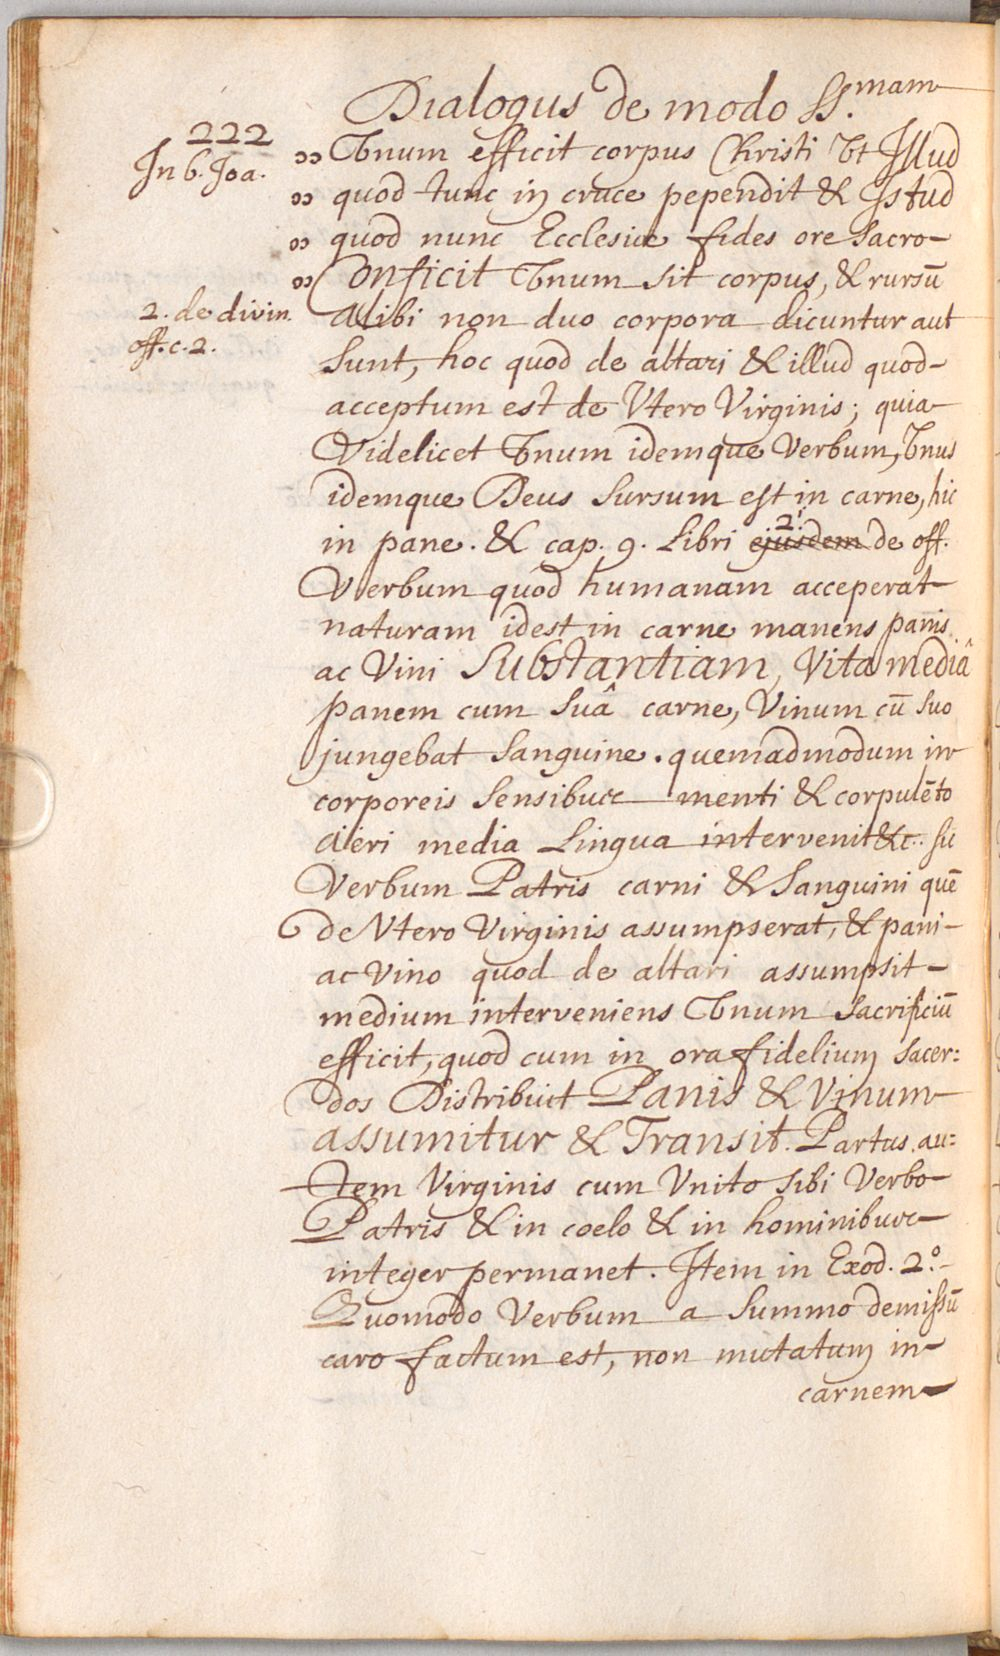 Dialogus de modo SS.mam
222
In 6. Joa.
Vnum efficit corpus Christi Vt Illud
quod tunc in cruce pependit & Istud
quod nunc Ecclesiæ fides ore sacro-
Conficit Vnum sit corpus, & rursū
2. de divin.
off. c. 2.
Alibi non duo corpora dicuntur aut
sunt, hoc quod de altari & illud quod
acceptum est de Vtero Virginis; quia
Videlicet Vnum idemque Verbum, Vnus
idemque Deus sursum est in carne, hic
in pane. & cap. 9. Libri ejusdem 2i de off.
Verbum quod humanam acceperat
naturam idest in carne manens panis
ac Vini Substantiam, Vita mediâ
panem cum suâ carne, Vinum cū suo
jungebat sanguine. quemadmodum in
corporeis sensibus menti & corpulēto
aëri media Lingua intervenit &c. sic
Verbum Patris carni & sanguini quē
de Vtero Virginis assumpserat, & pani
ac Vino quod de altari assumpsit
medium interveniens Vnum sacrificiū
efficit, quod cum in ora fidelium sacer:
dos Distribuit Panis & Vinum
assumitur & Transit. Partus au:
tem Virginis cum Vnito sibi Verbo
Patris & in coelo & in hominibus
integer permanet. Item in Exod. 2.º
Quomodo Verbum a summo demissū
caro factum est, non mutatum in
carnem